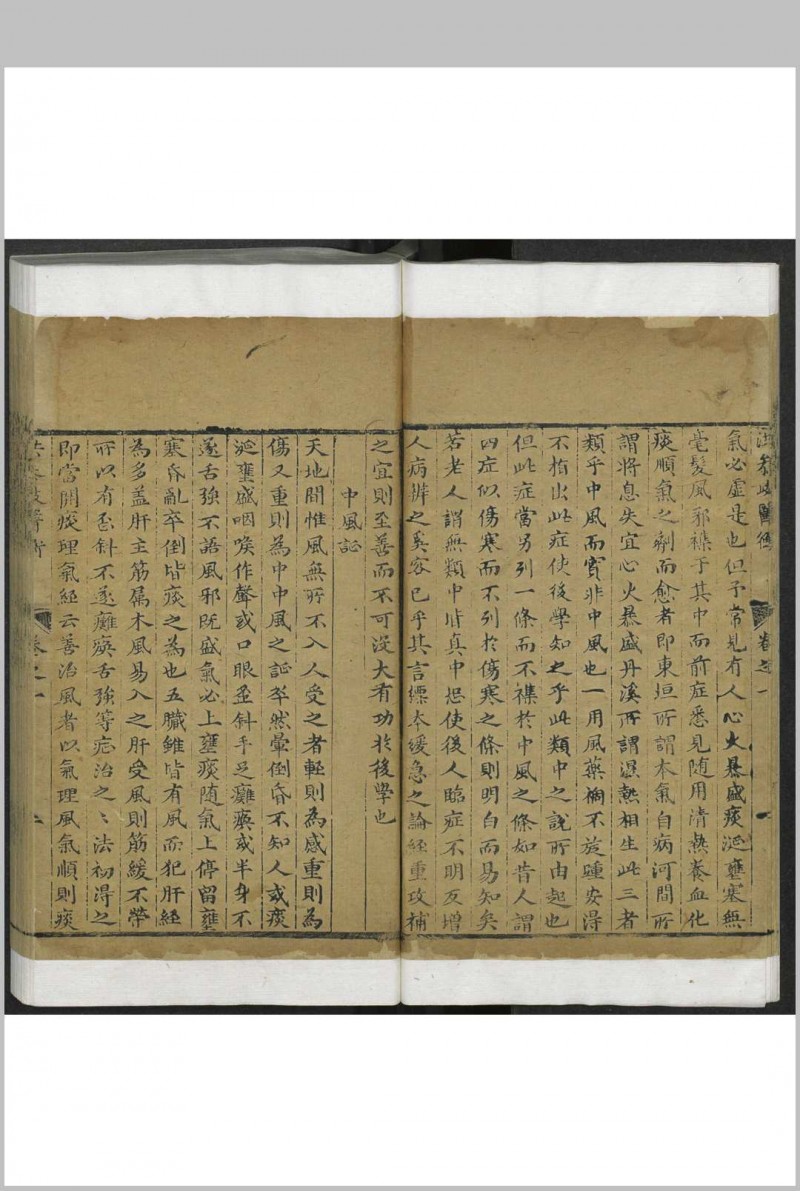 卷之一
氣必虛是也但予常見有人心火暴盛痰涎壅塞無
毫髮風邪襍于其中而前症悉見随用清熱養血化
痰順氣之劑而愈者即東垣所謂本氣自病河間所
謂將息失宜心火暴盛丹溪所謂濕熱相生此三者
類乎中風而實非中風也一用風藥禍不旋踵安淂
不指出此症使後學知之乎此類中之說所由起也
但此症當另列一條而不襍於中風之條如昔人謂
四症似傷寒而不列於傷寒之條則明白而易知矣
若老人謂無類中皆真中恐使後人臨症不明反增
人病辨之奚容已乎其言標本緩急之論經重攻補
之宜則至善而不可没大有功於後學也
中風証
天地間惟風無所不入人受之者輕則為感重則為
傷又重則為中中風之証卒然暈倒昏不知人或痰
涎壅盛咽喉作聲或口眼歪斜手足癱瘓或半身不
遂舌強不語風邪既盛氣必上壅痰随氣上停留壅
塞昏亂卒倒皆痰之為也五臟雖皆有風而犯肝経
為多盖肝主筋属木風易入之肝受風則筋緩不榮
所以有歪斜不遂癱瘓舌強等症治之之法初淂之
即當開痰理氣経云善治風者以氣理風氣順則痰
卷之一